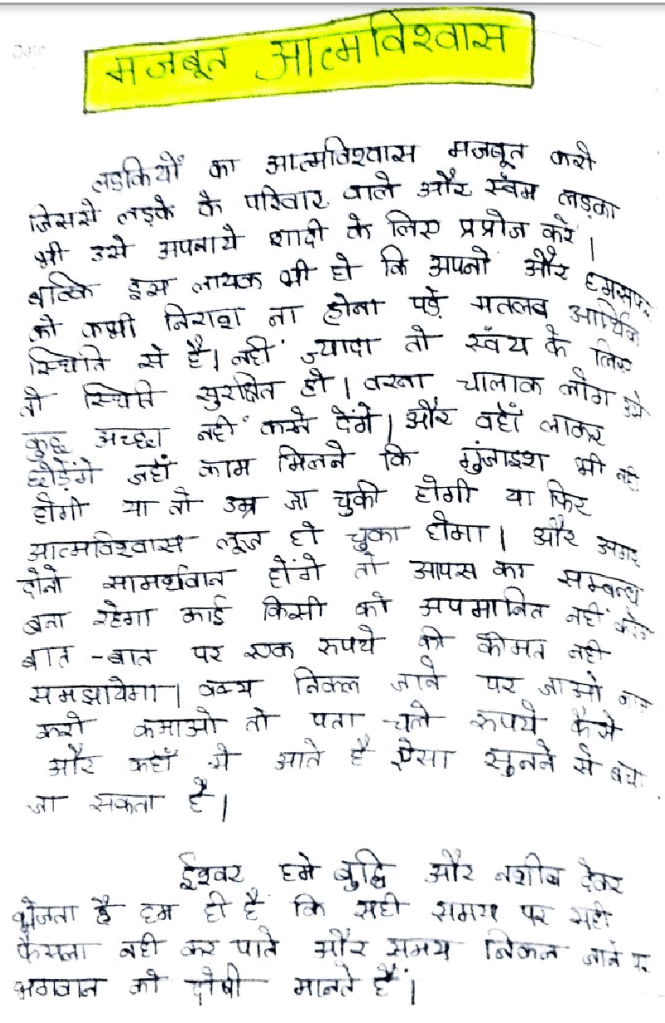 मजबूत आत्मविश्वास
लडकियों का आत्मविश्वास मजबूत करो
जिससे लड़के के परिवार वाले और स्वंम लड़का
भी उसे अपनाये शादी के लिए प्रपोज करे।
बल्कि इस लायक भी हो कि अपनो और हमसफर
को कभी निराश ना होना पड़े मतलब आर्थिक
स्थिति से है। नहीं ज्यादा तो स्वंय के लिए
तो स्थिति सुरक्षित हो। वरना चालाक लोग उसे
कुछ अच्छा नहीं करने देंगे। और वहाँ लाकर
छोड़ेंगे जहाँ काम मिलने कि गुंजाइश भी नही
होगी या तो उम्र जा चुकी होगी या फिर
आत्मविश्वास लूज हो चुका होगा। और अगर
दोनो सामर्थवान होंगे तो आपस का सम्बन्ध
बना रहेगा कोई किसी को अपमानित नहीं करेगा
बात -बात पर एक रुपये की कीमत नही
समझायेगा। वक्य निकल जाने पर जाओ काम
करो कमाओ तो पता चले रुपये कैसे
और कहाँ से आते है ऐसा सुनने से बचा
जा सकता है।
ईश्वर हमे बुद्धि और नशीब देकर
भेजता है हम ही है कि सही समय पर सही
फैसला नही कर पाते और समय निकल जाने पर
भगवान को दोषी मानते हैं।